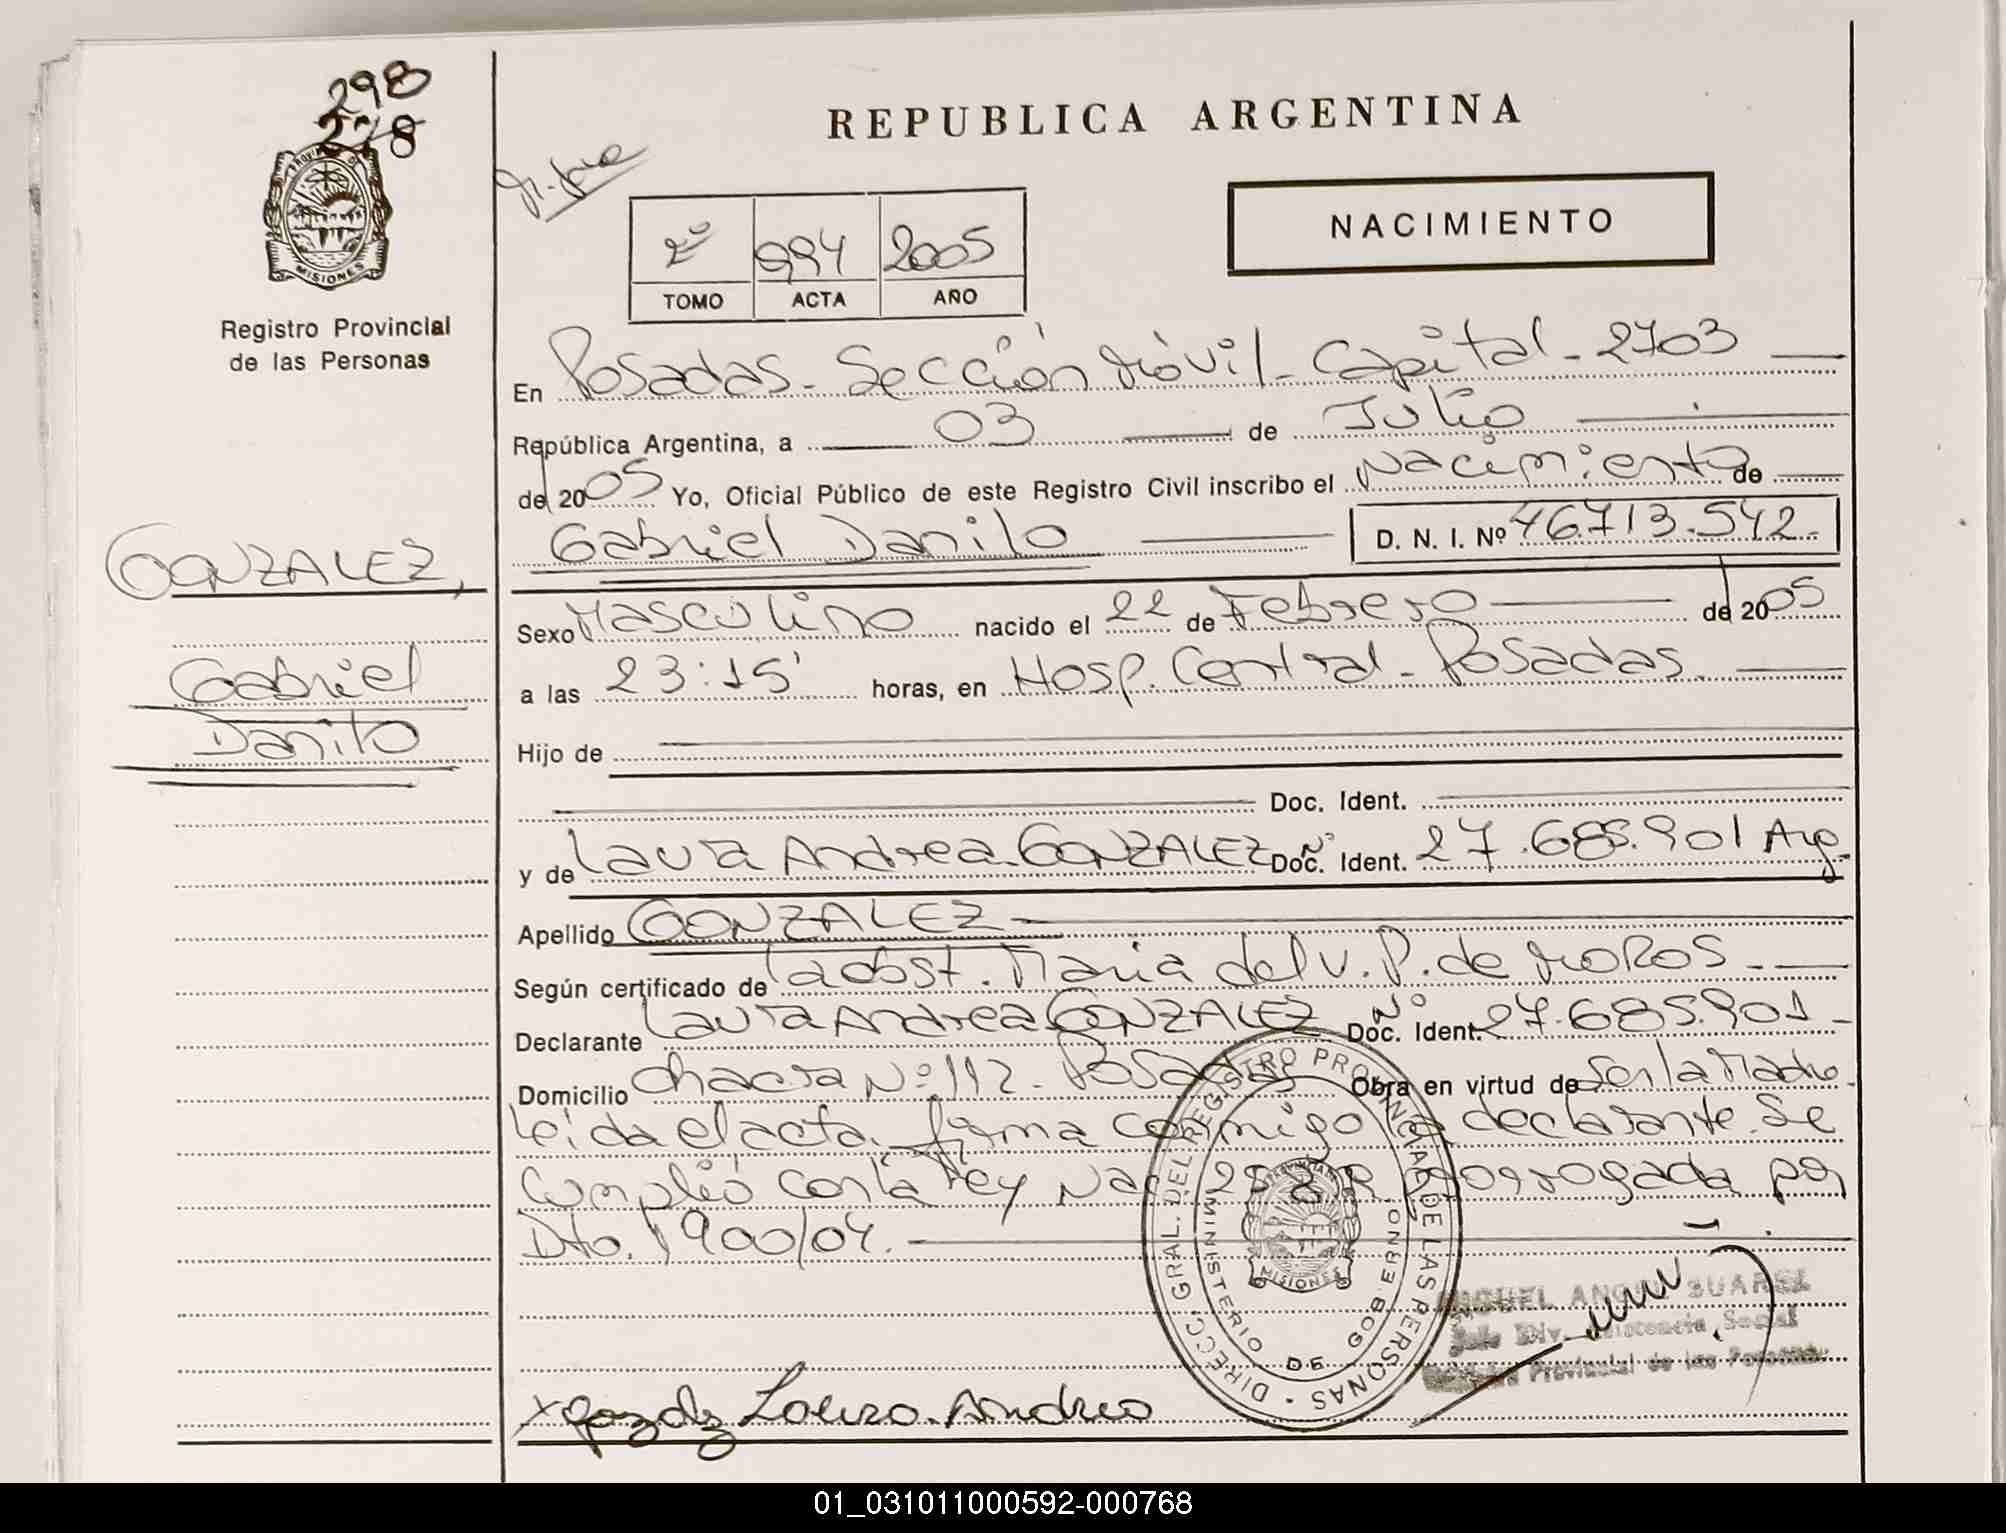 298
228
PROVINCIA DE
MISIONES
Registro Provincial
de las Personas
GONZALEZ,
Gabriel
Danilo
REPUBLICA ARGENTINA
NACIMIENTO
2º 994 2005
TOMO ACTA AÑO
En Posadas - Sección Móvil - Capital - 2703
República Argentina, a 03 de Julio
de 2005 Yo, Oficial Público de este Registro Civil inscribo el Nacimiento de
Gabriel Danilo D. N. I. Nº 46.713.542.-
Sexo Masculino nacido el 22 de Febrero de 2005
a las 23:15' horas, en Hosp. Central - Posadas.
Hijo de
Doc. Ident.
y de Laura Andrea GONZALEZ Doc. Ident. Nº 27.685.901 Arg.
Apellido GONZALEZ
Según certificado de la obst. Maria del V. P. de MOROS
Declarante Laura Andrea GONZALEZ Doc. Ident. Nº 27.685.901
Domicilio Chacra Nº 112 - Posadas Obra en virtud de Ser la Madre
Leida el acta, firma conmigo la declarante. Se
Cumplió con la Ley Nac. prorrogada por
Dto. 1900/04.
DIRECC. GRAL. DEL REGISTRO PROVINCIAL DE LAS PERSONAS
MINISTERIO DE GOBIERNO
MISIONES
MIGUEL ANGEL SUAREZ
Jefe Div. Asistencia Social
Registro Provincial de las Personas
x Laura Andrea
01_031011000592-000768